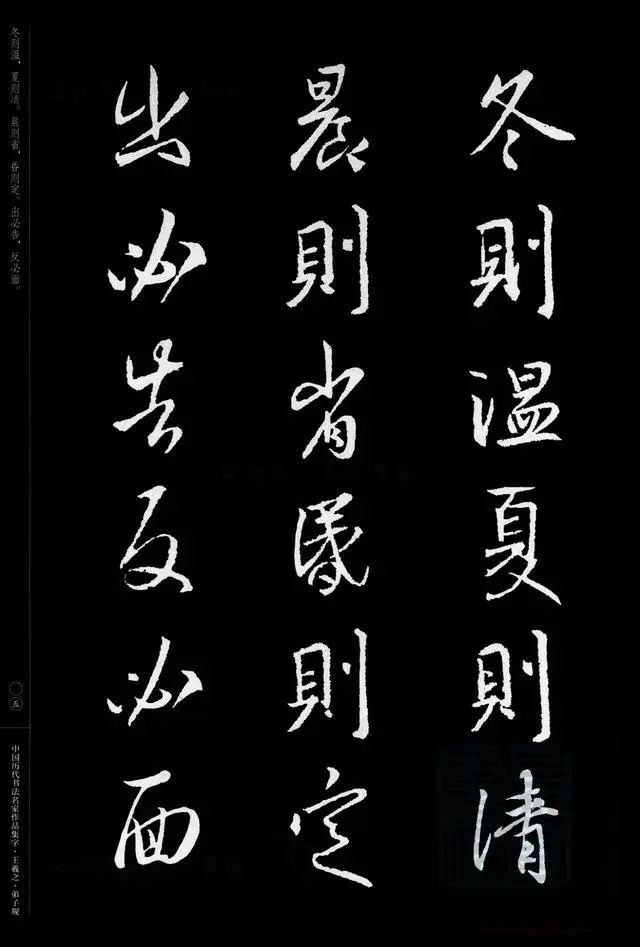 冬則温夏則清
晨則省昏則定
出必告反必面
冬则温，夏则清。晨则省，昏则定。出必告，反必面。
〇五
中国历代书法名家作品集字·王羲之·弟子规